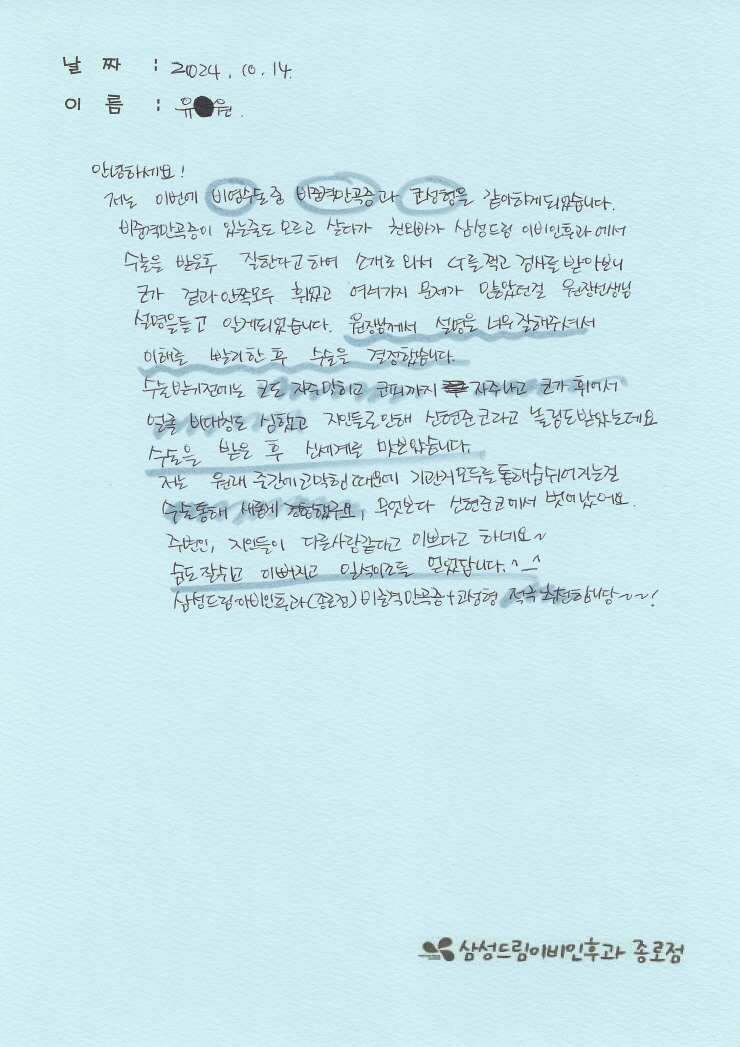 날 짜 : 2024. 10. 14.
이 름 : 유 원.
안녕하세요!
저는 이번에 비염수술중 비중격만곡증과 코성형을 같이하게되었습니다.
비중격만곡증이 있는줄도 모르고 살다가 친오빠가 삼성드림 이비인후과에서
수술을 받은후 잘한다고하여 소개로 와서 CT를 찍고 검사를 받아보니
코가 겉과 안쪽모두 휘었고 여러가지 문제가 많았던걸 원장선생님
설명을듣고 알게되었습니다. 원장님께서 설명을 너무 잘해주셔서
이해를 빨리한 후 수술을 결정했습니다.
수술받기전에는 코도 자주막히고 코피까지 자주나고 코가 휘어서
얼굴 비대칭도 심했고 지인들로인해 신현준코라고 놀림도받았는데요
수술을 받은 후 신세계를 맛보았습니다.
저는 원래 중간에코막힘때문에 기관지모두를통해숨쉬어지는걸
수술통해 새롭게 경험했구요, 무엇보다 신현준코에서 벗어났어요.
주변인, 지인들이 다른사람같다고 이쁘다고 하네요~
숨도잘쉬고 이뻐지고 일석이조를 얻었답니다.^_^
삼성드림이비인후과(종로점) 비중격만곡증+코성형 적극 추천합니당~~!
삼성드림이비인후과 종로점